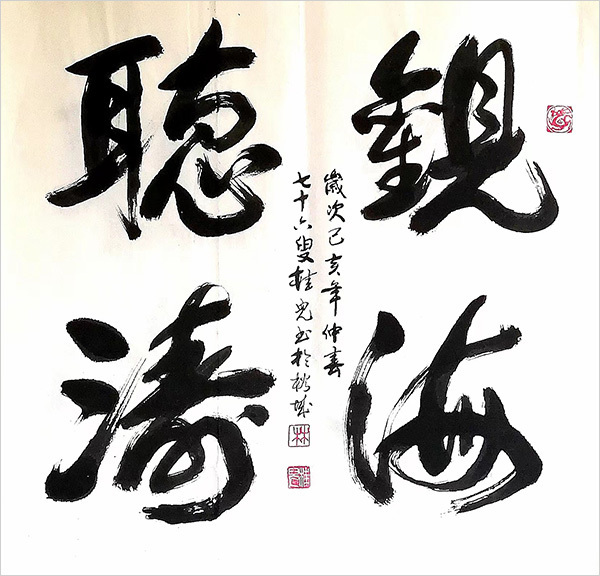 觀海
聽濤
歲次己亥年仲春
七十六叟桂書於榕城
林